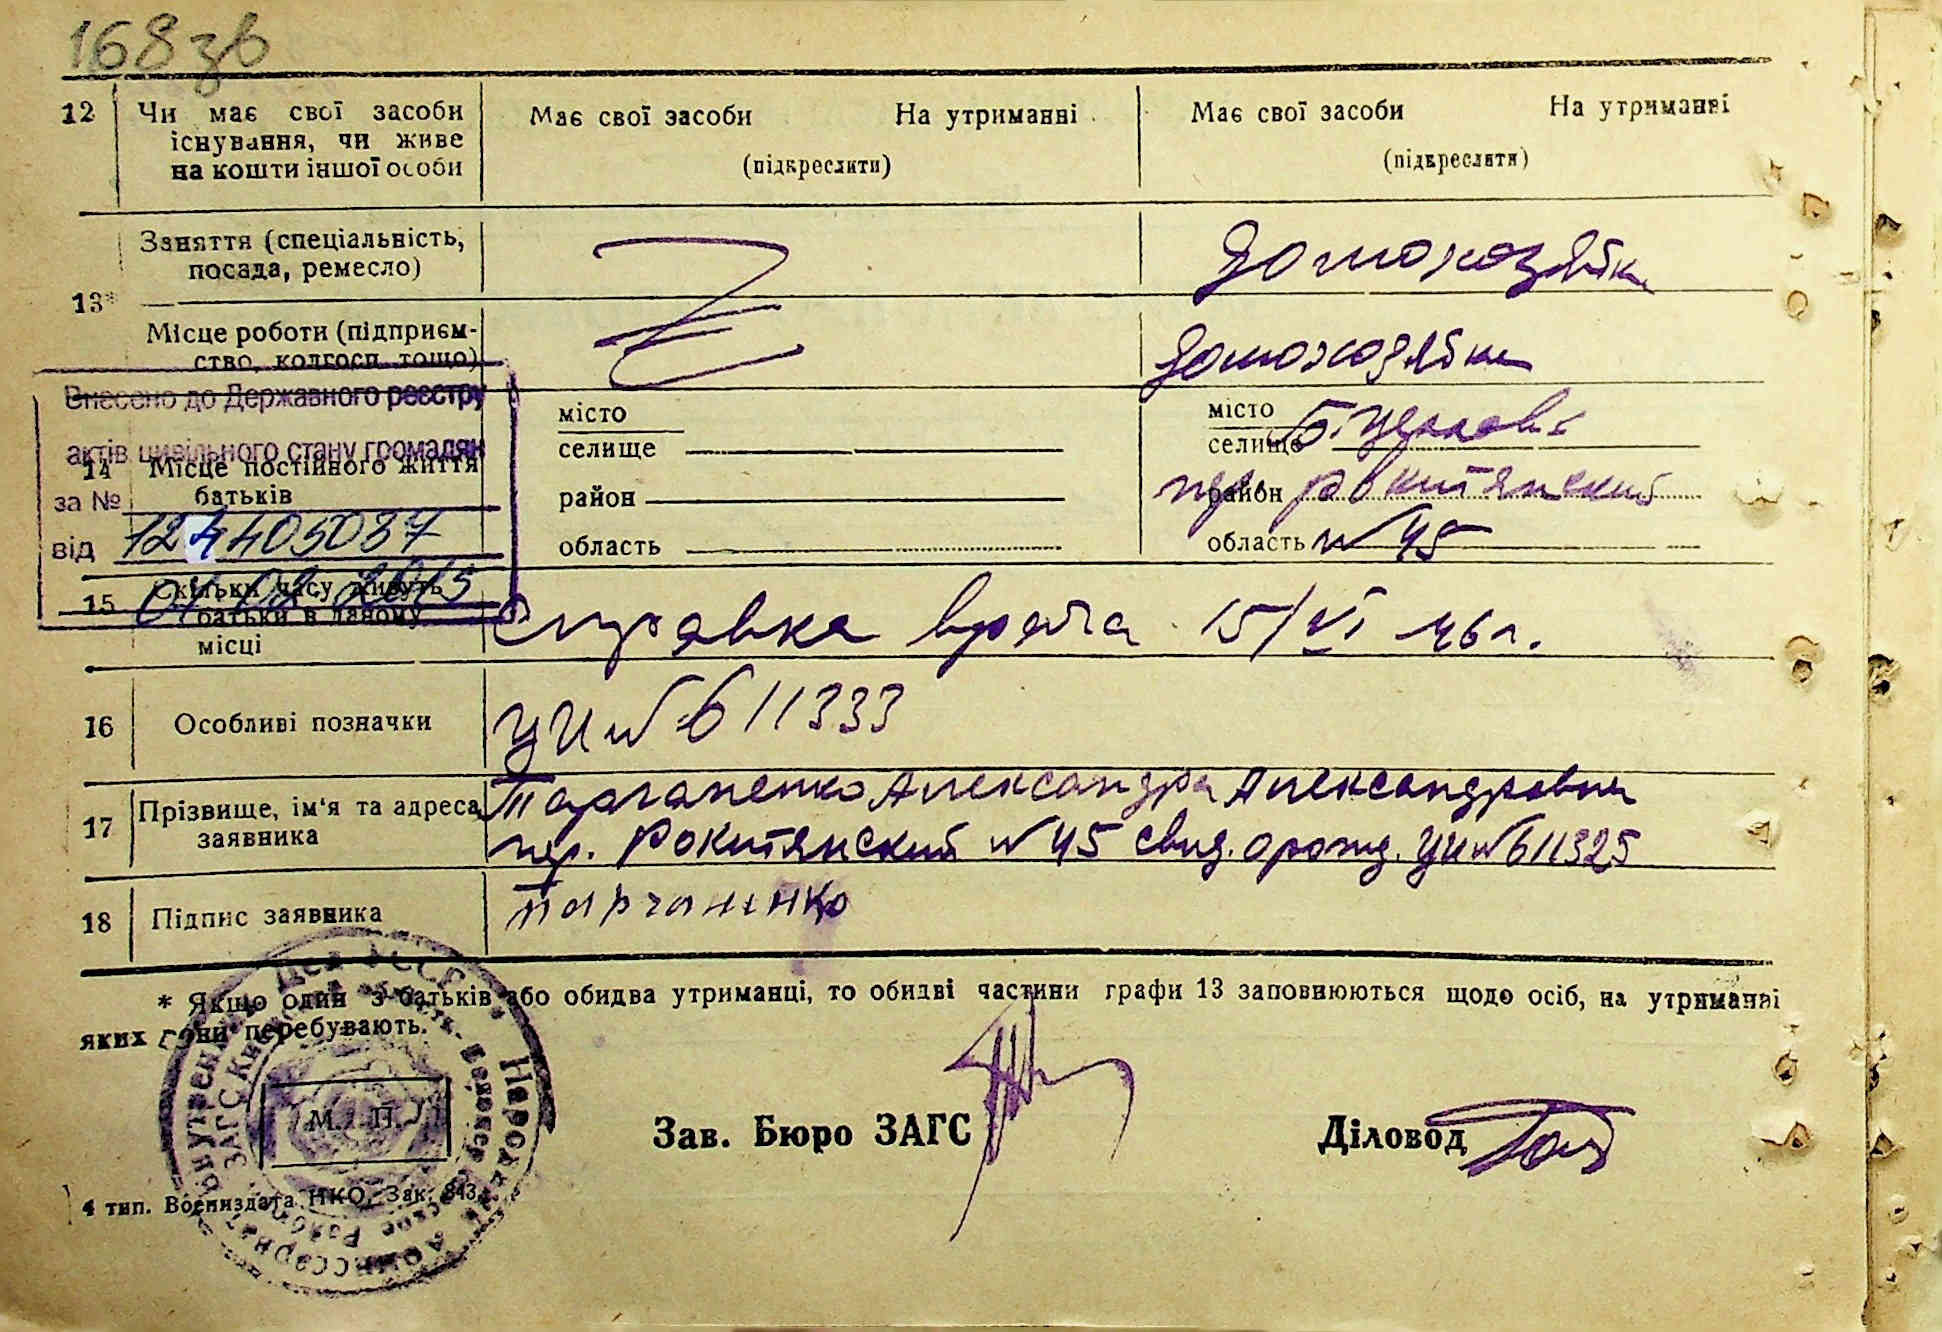 168зв
12 Чи має свої засоби існування, чи живе на кошти іншої особи
Має свої засоби На утриманні
(підкреслити)
Має свої засоби На утриманні
(підкреслити)
13*
Заняття (спеціальність,
посада, ремесло)
домохозяйка
Місце роботи (підприєм-
ство, колгосп тощо)
домохозяйка
Внесено до Державного реєстру
актів цивільного стану громадян
за №
від 124405087
04 02 2015
14 Місце постійного життя
батьків
місто
селище
район
область
місто Б. Церковь
селище
район пер. Рокитянский
область № 45
15 Скільки часу живуть
батьки в даному
місці
Справка врача 15/VI 46 г.
16 Особливі позначки
УИ № 611333
17 Прізвище, ім'я та адреса
заявника
Тарганенко Александра Александровна
пер. Рокитянский № 45 свид. о рожд. УИ № 611325
18 Підпис заявника
* Якщо один з батьків або обидва утриманці, то обидві частини графи 13 заповнюються щодо осіб, на утриманні
яких вони перебувають.
М. П.
Зав. Бюро ЗАГС
Діловод
4 тип. Воениздата НКО, Зак. 843